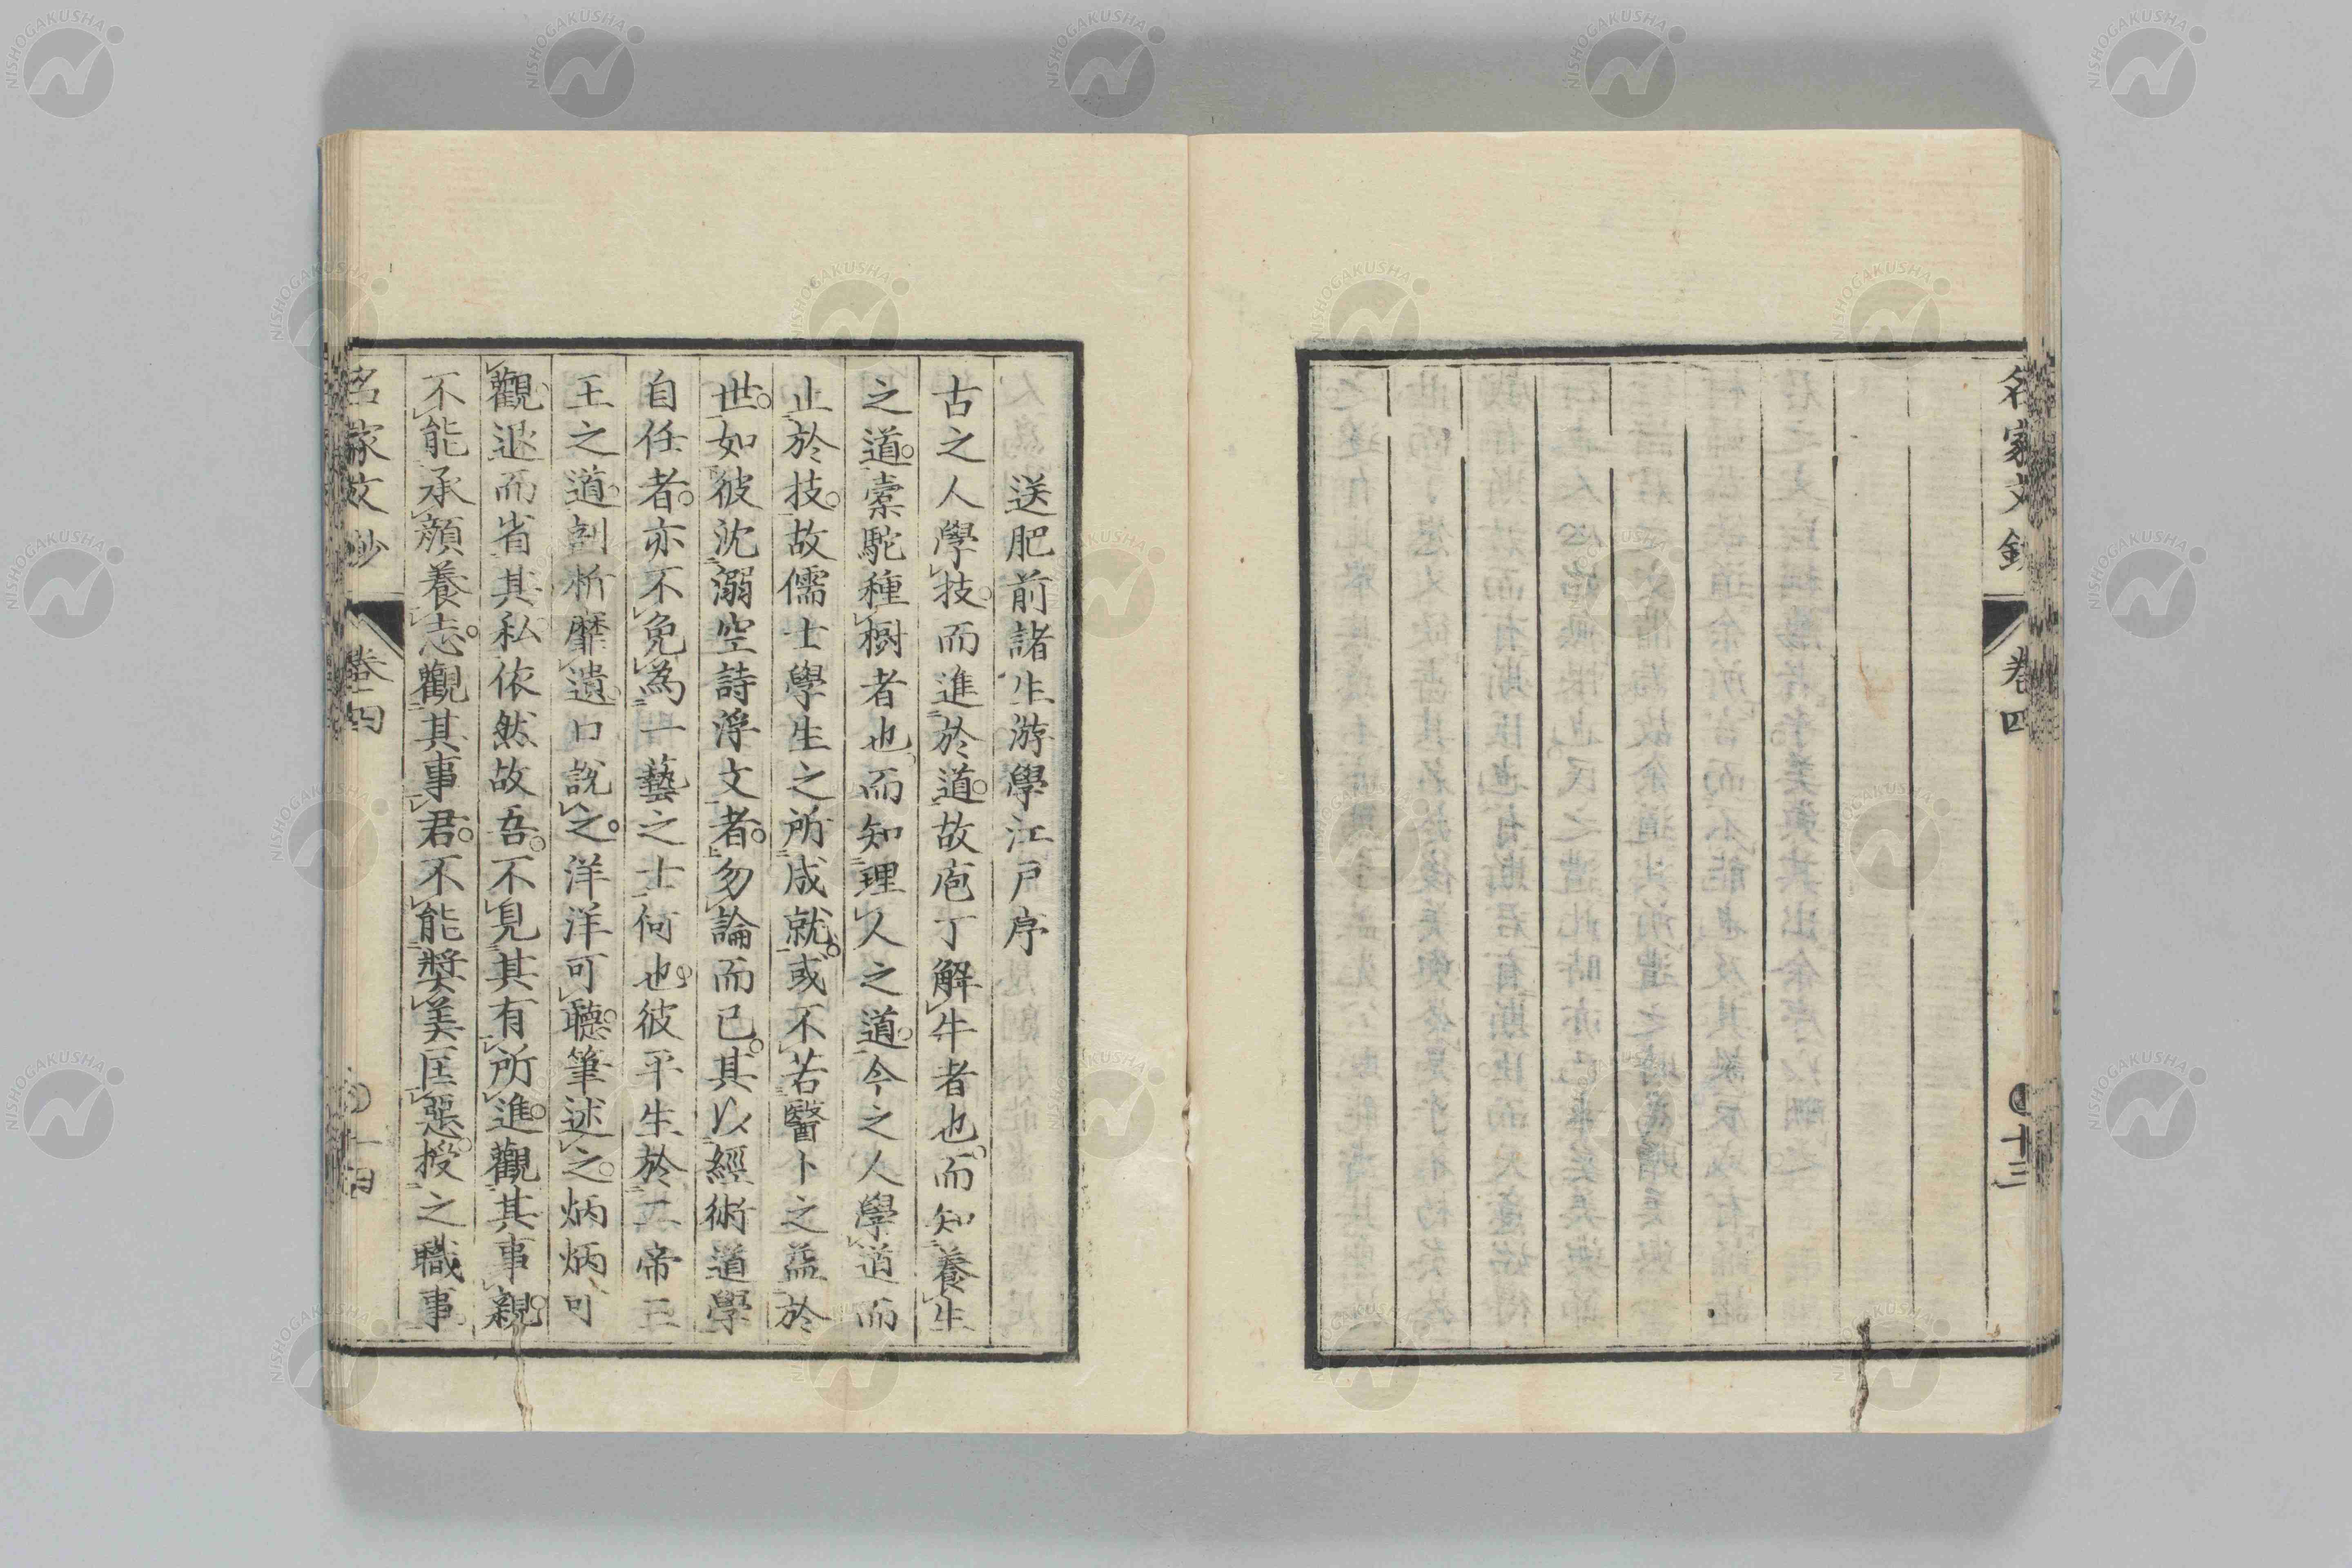 名家文鈔 卷四 十三
送肥前諸生游學江戸序
古之人學技。而進於道。故庖丁解牛者也。而知養生
之道。橐駝種樹者也。而知理人之道。今之人學道而
止於技。故儒士學生之所成就。或不若醫卜之益於
世。如彼沈溺空詩浮文者。勿論而已。其以經術道學
自任者。亦不免為一藝之士何也。彼平生於二帝三
王之道。剖析靡遺。口說之。洋洋可聽。筆述之。炳炳可
觀。退而省其私。依然故吾。不見其有所進。觀其事親。
不能承顏養志。觀其事君。不能奬美匡惡。授之職事。
名家文鈔 卷四 十四
NISHOGAKUSHA